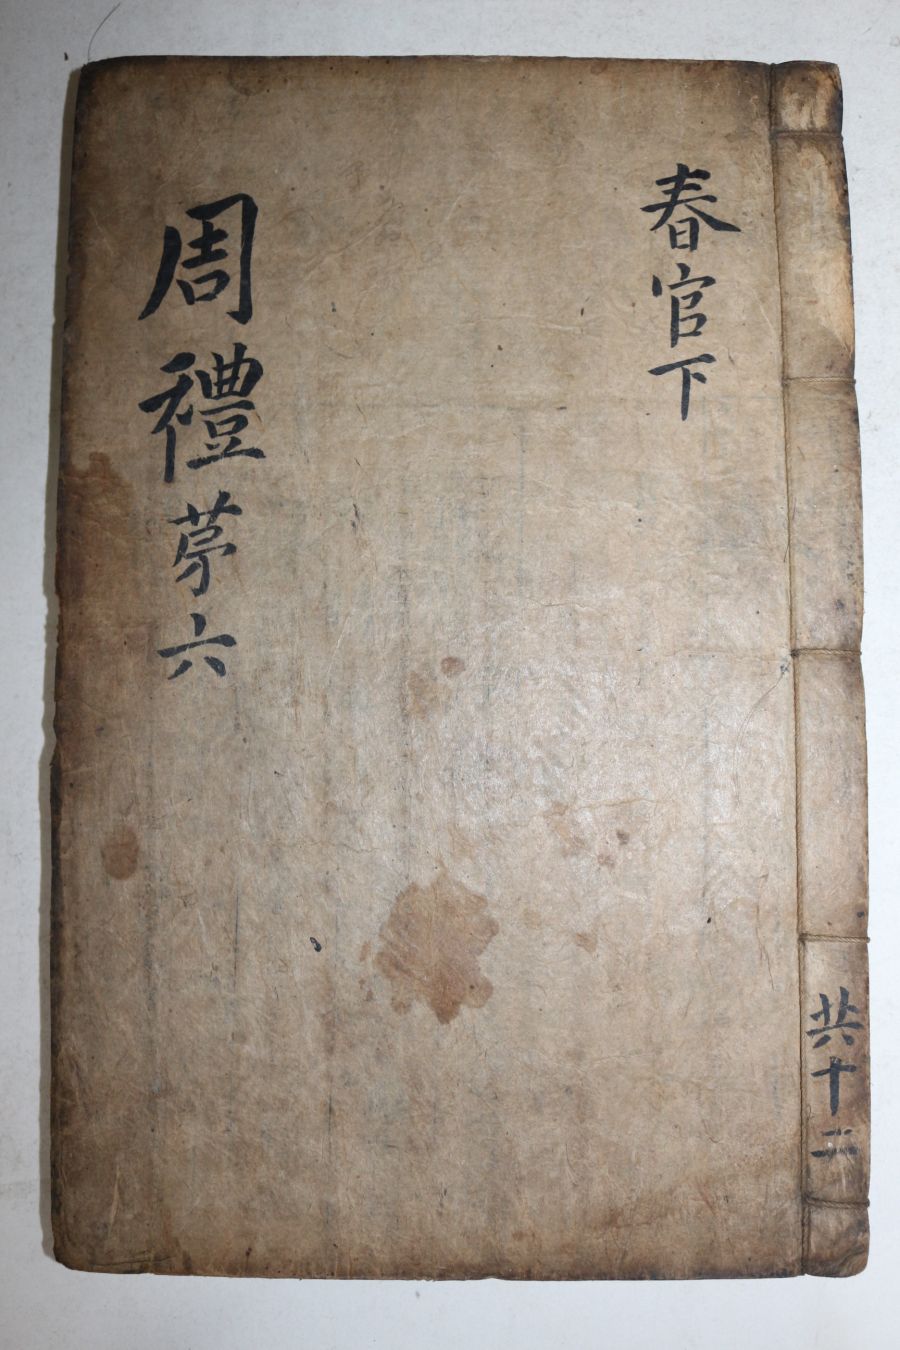 春官下
周禮苐六
共十二